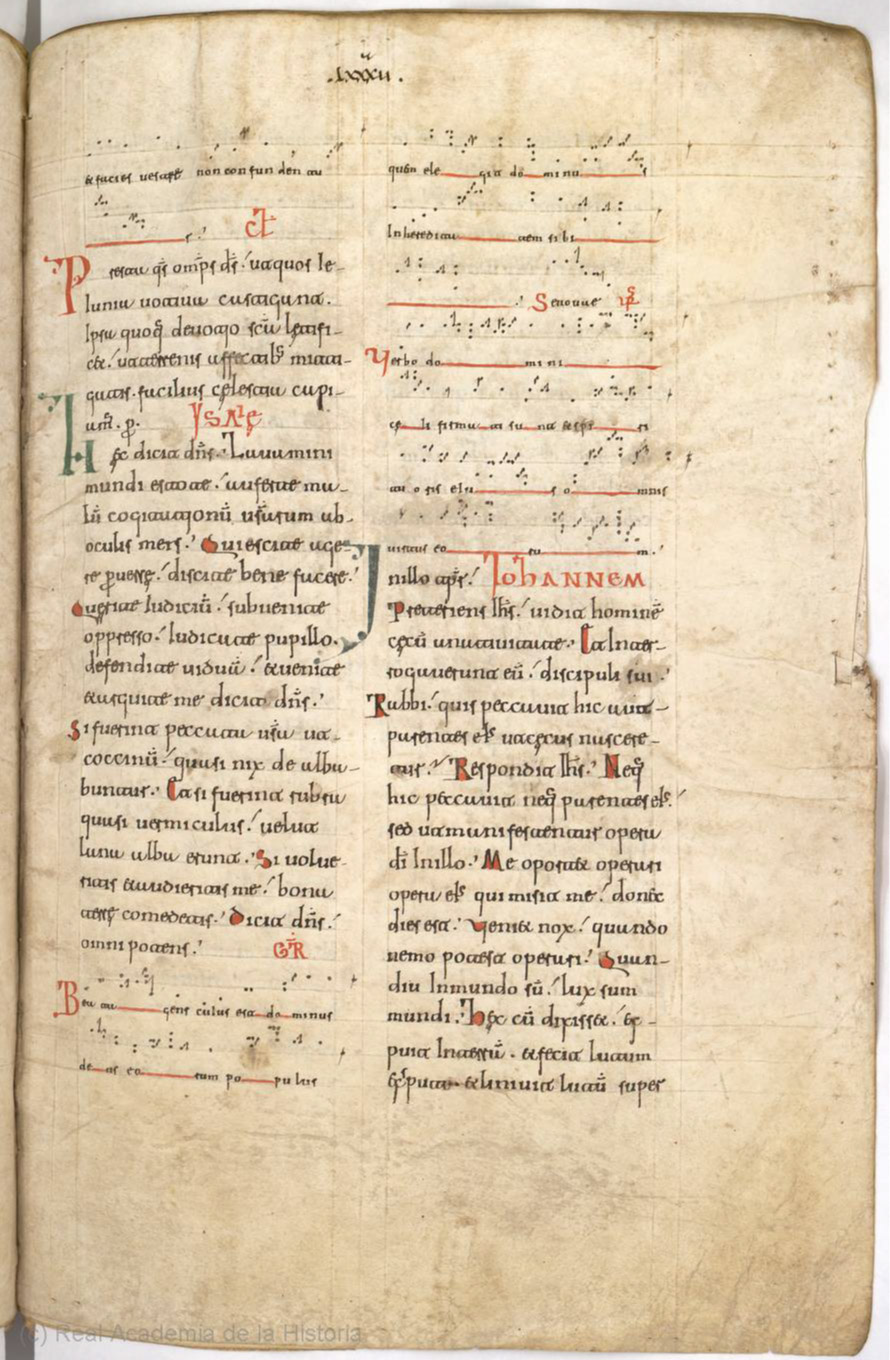 .LXXXII.
& facies uestrę non confun den tu
r. CT
Presta qs omps ds. ut quos ie-
iunia uotiua castigant.
Ipsa quoq deuotio scā lętifi-
cet. ut a terrenis affectib; miti-
gatis. facilius cęlestia capi-
ant. p. YSAIĘ
Hęc dicit dns. Lauamini
mundi estote. auferte ma-
lū cogitationū ab
oculis meis. Quiescite age-
re peruersę. discite bene facere.
Querite iudiciū. subuenite
oppresso. Iudicate pupillo.
defendite uiduā. & uenite
& arguite me dicit dns.
Si fuerint peccata ura ut
coccinū. quasi nix de alba-
buntur. Et si fuerint rubra
quasi uermiculus. uelut
lana alba erunt. Si uolue-
ritis & audieritis me. bona
terrę comedetis. Dicit dns.
omnipotens. GR
Bea ta gens cuius est do minus
de us eo rum po pulus
quem ele git do minu s
In heredita tem si bi
Seuouae
Verbo do mi ni
cę li firmu ti su nt & spi ri
tu o ris eiu s o mnis
uirtus eo ru m.
In illo tpr. IOHANNEM
Preteriens ihs. uidit hominē
cęcū a natiuitate. Et Inter-
rogauerunt eū. discipuli sui.
Rabbi. quis peccauit hic aut
parentes ei; ut cęcus nascere-
tur. Respondit ihs. Neq
hic peccauit neq parentes ei;
sed ut manifestentur opera
di In illo. Me oportet operari
opera ei; qui misit me. donec
dies est. Venit nox. quando
nemo potest operari. Quan-
diu In mundo sū. lux sum
mundi. Hęc cū dixisset. ex-
puit In terrū. & fecit lutum
ex sputo & liniuit lutū super